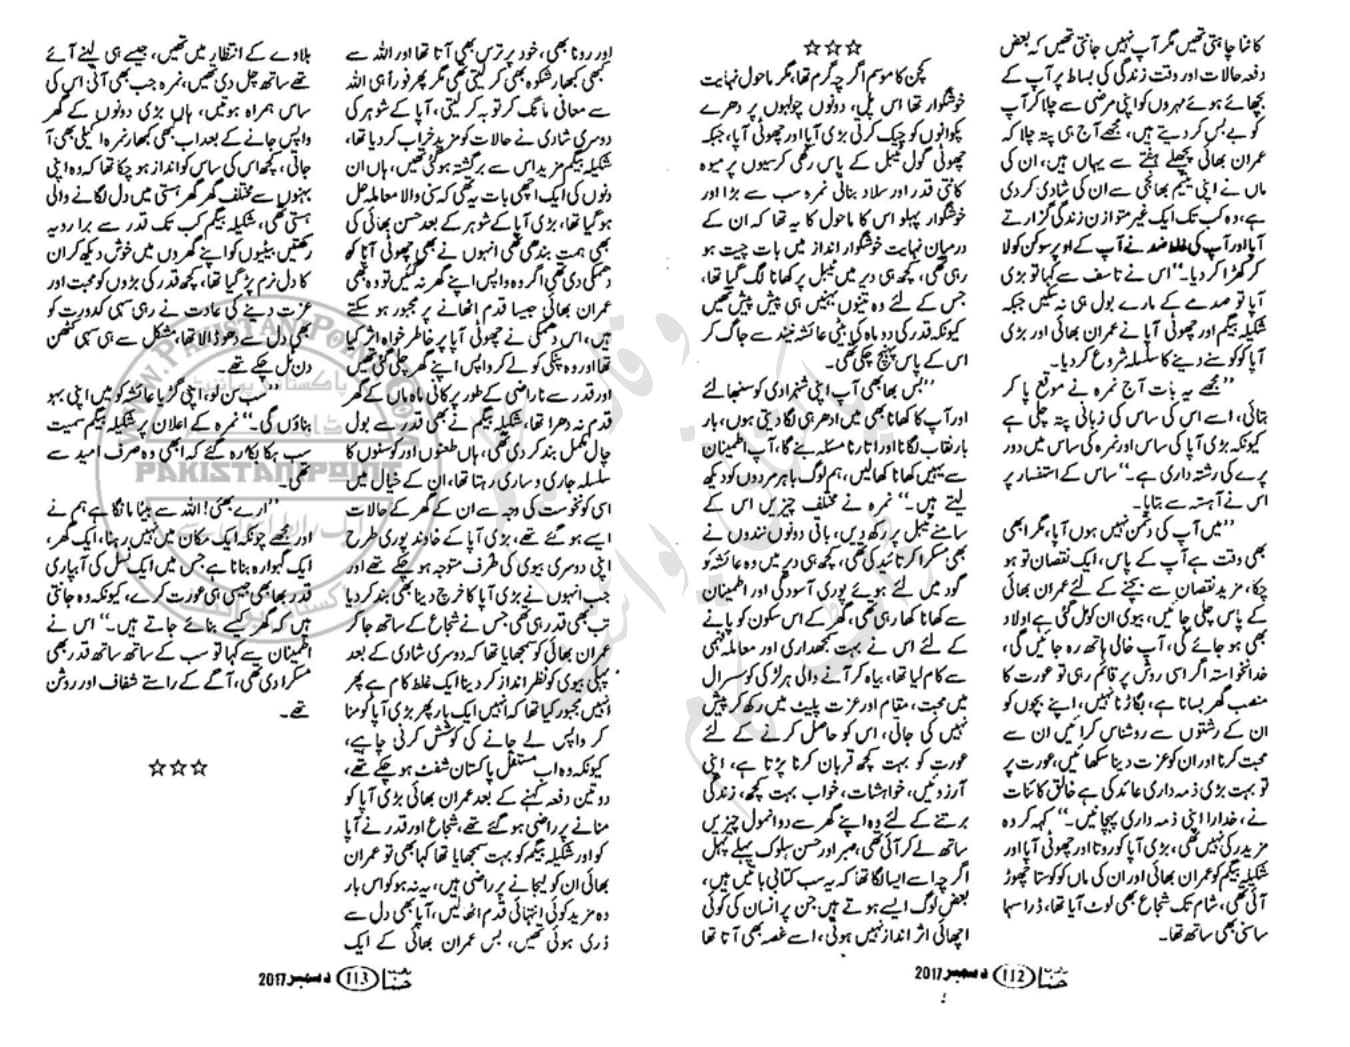 کاٹنا چاہتی تھیں مگر آپ نہیں جانتی تھیں کہ بعض
دفعہ حالات اور وقت زندگی کی بساط پر آپ کے
بچھائے ہوئے مہروں کو اپنی مرضی سے چلا کر آپ
کو بے بس کر دیتے ہیں، مجھے آج ہی پتہ چلا کہ
عمران بھائی پچھلے ہفتے سے یہاں ہیں، ان کی
ماں نے اپنی یتیم بھانجی سے ان کی شادی کر دی
ہے، وہ کب تک ایک غیر متوازن زندگی گزارتے
آپا اور آپ کی غلط ضد نے آپ کے اوپر سوکن کو لا
کر کھڑا کر دیا۔“ اس نے تاسف سے کہا تو بڑی
آپا تو صدمے کے مارے بول ہی نہ سکیں جبکہ
شکیلہ بیگم اور چھوٹی آپا نے عمران بھائی اور بڑی
آپا کو کوسنے دینے کا سلسلہ شروع کر دیا۔
”مجھے یہ بات آج نمرہ نے موقع پا کر
بتائی، اسے اس کی ساس کی زبانی پتہ چلی ہے
کیونکہ بڑی آپا کی ساس اور نمرہ کی ساس میں دور
پرے کی رشتہ داری ہے۔“ ساس کے استفسار پر
اس نے آہستہ سے بتایا۔
”میں آپ کی دشمن نہیں ہوں آپا، مگر ابھی
بھی وقت ہے آپ کے پاس، ایک نقصان تو ہو
چکا، مزید نقصان سے بچنے کے لئے عمران بھائی
کے پاس چلی جائیں، بیوی ان کو مل گئی ہے اولاد
بھی ہو جائے گی، آپ خالی ہاتھ رہ جائیں گی،
خدانخواستہ اگر اسی روش پر قائم رہی تو عورت کا
منصب گھر بسانا ہے، بگاڑنا نہیں، اپنے بچوں کو
ان کے رشتوں سے روشناس کرائیں ان سے
محبت کرنا اور ان کو عزت دینا سکھائیں، عورت پر
تو بہت بڑی ذمہ داری عائد کی ہے خالق کائنات
نے، خدارا اپنی ذمہ داری پہچانیں۔“ کہہ کر وہ
مزید رکی نہیں تھی، بڑی آپا کو روتا اور چھوٹی آپا اور
شکیلہ بیگم کو عمران بھائی اور ان کی ماں کو کوستا چھوڑ
آئی تھی، شام تک شجاع بھی لوٹ آیا تھا، ذرا سہا
ساسنی بھی ساتھ تھا۔
☆☆☆
کچن کا موسم اگرچہ گرم تھا، مگر ماحول نہایت
خوشگوار تھا اس پل، دونوں چولہوں پر دھرے
پکوانوں کو چیک کرتی بڑی آپا اور چھوٹی آپا، جبکہ
چھوٹی گول ٹیبل کے پاس رکھی کرسیوں پر میوہ
کاٹتی قدر اور سلاد بناتی نمرہ سب سے بڑا اور
خوشگوار پہلو اس کا ماحول کا یہ تھا کہ ان کے
درمیان نہایت خوشگوار انداز میں بات چیت ہو
رہی تھی، کچھ ہی دیر میں ٹیبل پر کھانا لگ گیا تھا،
جس کے لئے وہ تینوں بہنیں ہی پیش پیش تھیں
کیونکہ قدر کی دو ماہ کی بیٹی عائشہ نیند سے جاگ کر
اس کے پاس پہنچ چکی تھی۔
”بس بھابھی آپ اپنی شہزادی کو سنبھالئے
اور آپ کا کھانا بھی میں ادھر ہی لگا دیتی ہوں، بار
بار نقاب لگانا اور اتارنا مسئلہ بنے گا، آپ اطمینان
سے یہیں کھانا کھالیں، ہم لوگ باہر مردوں کو دیکھ
لیتے ہیں۔“ نمرہ نے مختلف چیزیں اس کے
سامنے ٹیبل پر رکھ دیں، باقی دونوں نندوں نے
بھی مسکرا کر تائید کی تھی، کچھ ہی دیر میں وہ عائشہ کو
گود میں لئے ہوئے پوری آسودگی اور اطمینان
سے کھانا کھا رہی تھی، گھر کے اس سکون کو پانے
کے لئے اس نے بہت سمجھداری اور معاملہ فہمی
سے کام لیا تھا، بیاہ کر آنے والی ہر لڑکی کو سسرال
میں محبت، مقام اور عزت پلیٹ میں رکھ کر پیش
نہیں کی جاتی، اس کو حاصل کرنے کے لئے
عورت کو بہت کچھ قربان کرنا پڑتا ہے، اپنی
آرزوئیں، خواہشات، خواب بہت کچھ، زندگی
برتنے کے لئے وہ اپنے گھر سے دو انمول چیزیں
ساتھ لے کر آئی تھی، صبر اور حسن سلوک پہلے پہل
اگرچہ اسے ایسا لگا تھا کہ یہ سب کتابی باتیں ہیں،
بعض لوگ ایسے ہوتے ہیں جن پر انسان کی کوئی
اچھائی اثر انداز نہیں ہوتی، اسے غصہ بھی آتا تھا
حنا 112 دسمبر 2017
اور رونا بھی، خود پر ترس بھی آتا تھا اور اللہ سے
کبھی کبھار شکوہ بھی کر لیتی تھی مگر پھر فوراً ہی اللہ
سے معافی مانگ کر توبہ کر لیتی، آپا کے شوہر کی
دوسری شادی نے حالات کو مزید خراب کر دیا تھا،
شکیلہ بیگم مزید اس سے برگشتہ ہو گئی تھیں، ہاں ان
دنوں کی ایک اچھی بات یہ تھی کہ سنی والا معاملہ حل
ہو گیا تھا، بڑی آپا کے شوہر کے بعد حسن بھائی کی
بھی ہمت بندھی تھی انہوں نے بھی چھوٹی آپا کو
دھمکی دی تھی اگر وہ واپس اپنے گھر نہ گئیں تو وہ بھی
عمران بھائی جیسا قدم اٹھانے پر مجبور ہو سکتے
ہیں، اس دھمکی نے چھوٹی آپا پر خاطر خواہ اثر کیا
تھا اور وہ پنکی کو لے کر واپس اپنے گھر چلی گئی تھیں
اور قدر سے ناراضی کے طور پر کافی ماہ ماں کے گھر
قدم نہ دھرا تھا، شکیلہ بیگم نے بھی قدر سے بول
چال مکمل بند کر دی تھی، ہاں طعنوں اور کوسنوں کا
سلسلہ جاری و ساری رہتا تھا، ان کے خیال میں
اسی کو نحوست کی وجہ سے ان کے گھر کے حالات
ایسے ہو گئے تھے، بڑی آپا کے خاوند پوری طرح
اپنی دوسری بیوی کی طرف متوجہ ہو چکے تھے اور
جب انہوں نے بڑی آپا کا خرچ دینا بھی بند کر دیا
تب بھی قدر رہی تھی جس نے شجاع کے ساتھ جا کر
عمران بھائی کو سمجھایا تھا کہ دوسری شادی کے بعد
پہلی بیوی کو نظر انداز کر دینا ایک غلط کام ہے پھر
انہیں مجبور کیا تھا کہ انہیں ایک بار پھر بڑی آپا کو منا
کر واپس لے جانے کی کوشش کرنی چاہے،
کیونکہ وہ اب مستقل پاکستان شفٹ ہو چکے تھے،
دو تین دفعہ کہنے کے بعد عمران بھائی بڑی آپا کو
منانے پر راضی ہو گئے تھے، شجاع اور قدر نے آپا
کو اور شکیلہ بیگم کو بہت سمجھایا تھا کہا بھی تو عمران
بھائی ان کو لیجانے پر راضی ہیں، یہ نہ ہو کو اس بار
وہ مزید کوئی انتہائی قدم اٹھ لیں، آپا بھی دل سے
ڈری ہوئی تھیں، بس عمران بھائی کے ایک
بلاوے کے انتظار میں تھیں، جیسے ہی لینے آئے
تھے ساتھ چل دی تھیں، نمرہ جب بھی آتی اس کی
ساس ہمراہ ہوتیں، ہاں بڑی دونوں کے گھر
واپس جانے کے بعد اب بھی کبھار نمرہ اکیلی بھی آ
جاتی، کچھ اس کی ساس کو انداز ہو چکا تھا کہ وہ اپنی
بہنوں سے مختلف گھر گھر ہستی میں دل لگانے والی
ہستی تھی، شکیلہ بیگم کب تک قدر سے برا رویہ
رکھتیں بیٹیوں کو اپنے گھروں میں خوش دیکھ کر ان
کا دل نرم پڑ گیا تھا، کچھ قدر کی بڑوں کو محبت اور
عزت دینے کی عادت نے رہی سہی کدورت کو
بھی دل سے دھو ڈالا تھا، مشکل سے ہی سہی کٹھن
دن ٹل چکے تھے۔
”سب سن لو، اپنی گڑیا عائشہ کو میں اپنی بہو
بناؤں گی۔“ نمرہ کے اعلان پر شکیلہ بیگم سمیت
سب ہکا بکا رہ گئے کہ ابھی وہ صرف امید سے
تھی۔
”ارے بھئی! اللہ سے بیٹا مانگا ہے ہم نے
اور مجھے چونکہ ایک مکان میں نہیں رہنا، ایک گھر،
ایک گہوارہ بنانا ہے جس میں ایک نسل کی آبیاری
قدر بھابھی جیسی ہی عورت کرے، کیونکہ وہ جانتی
ہیں کہ گھر کیسے بنائے جاتے ہیں۔“ اس نے
اطمینان سے کہا تو سب کے ساتھ ساتھ قدر بھی
مسکرا دی تھی، آگے کے راستے شفاف اور روشن
تھے۔
☆☆☆
حنا 113 دسمبر 2017
WWW.PAKISTANIPOINT.COM
PAKISTANIPOINT